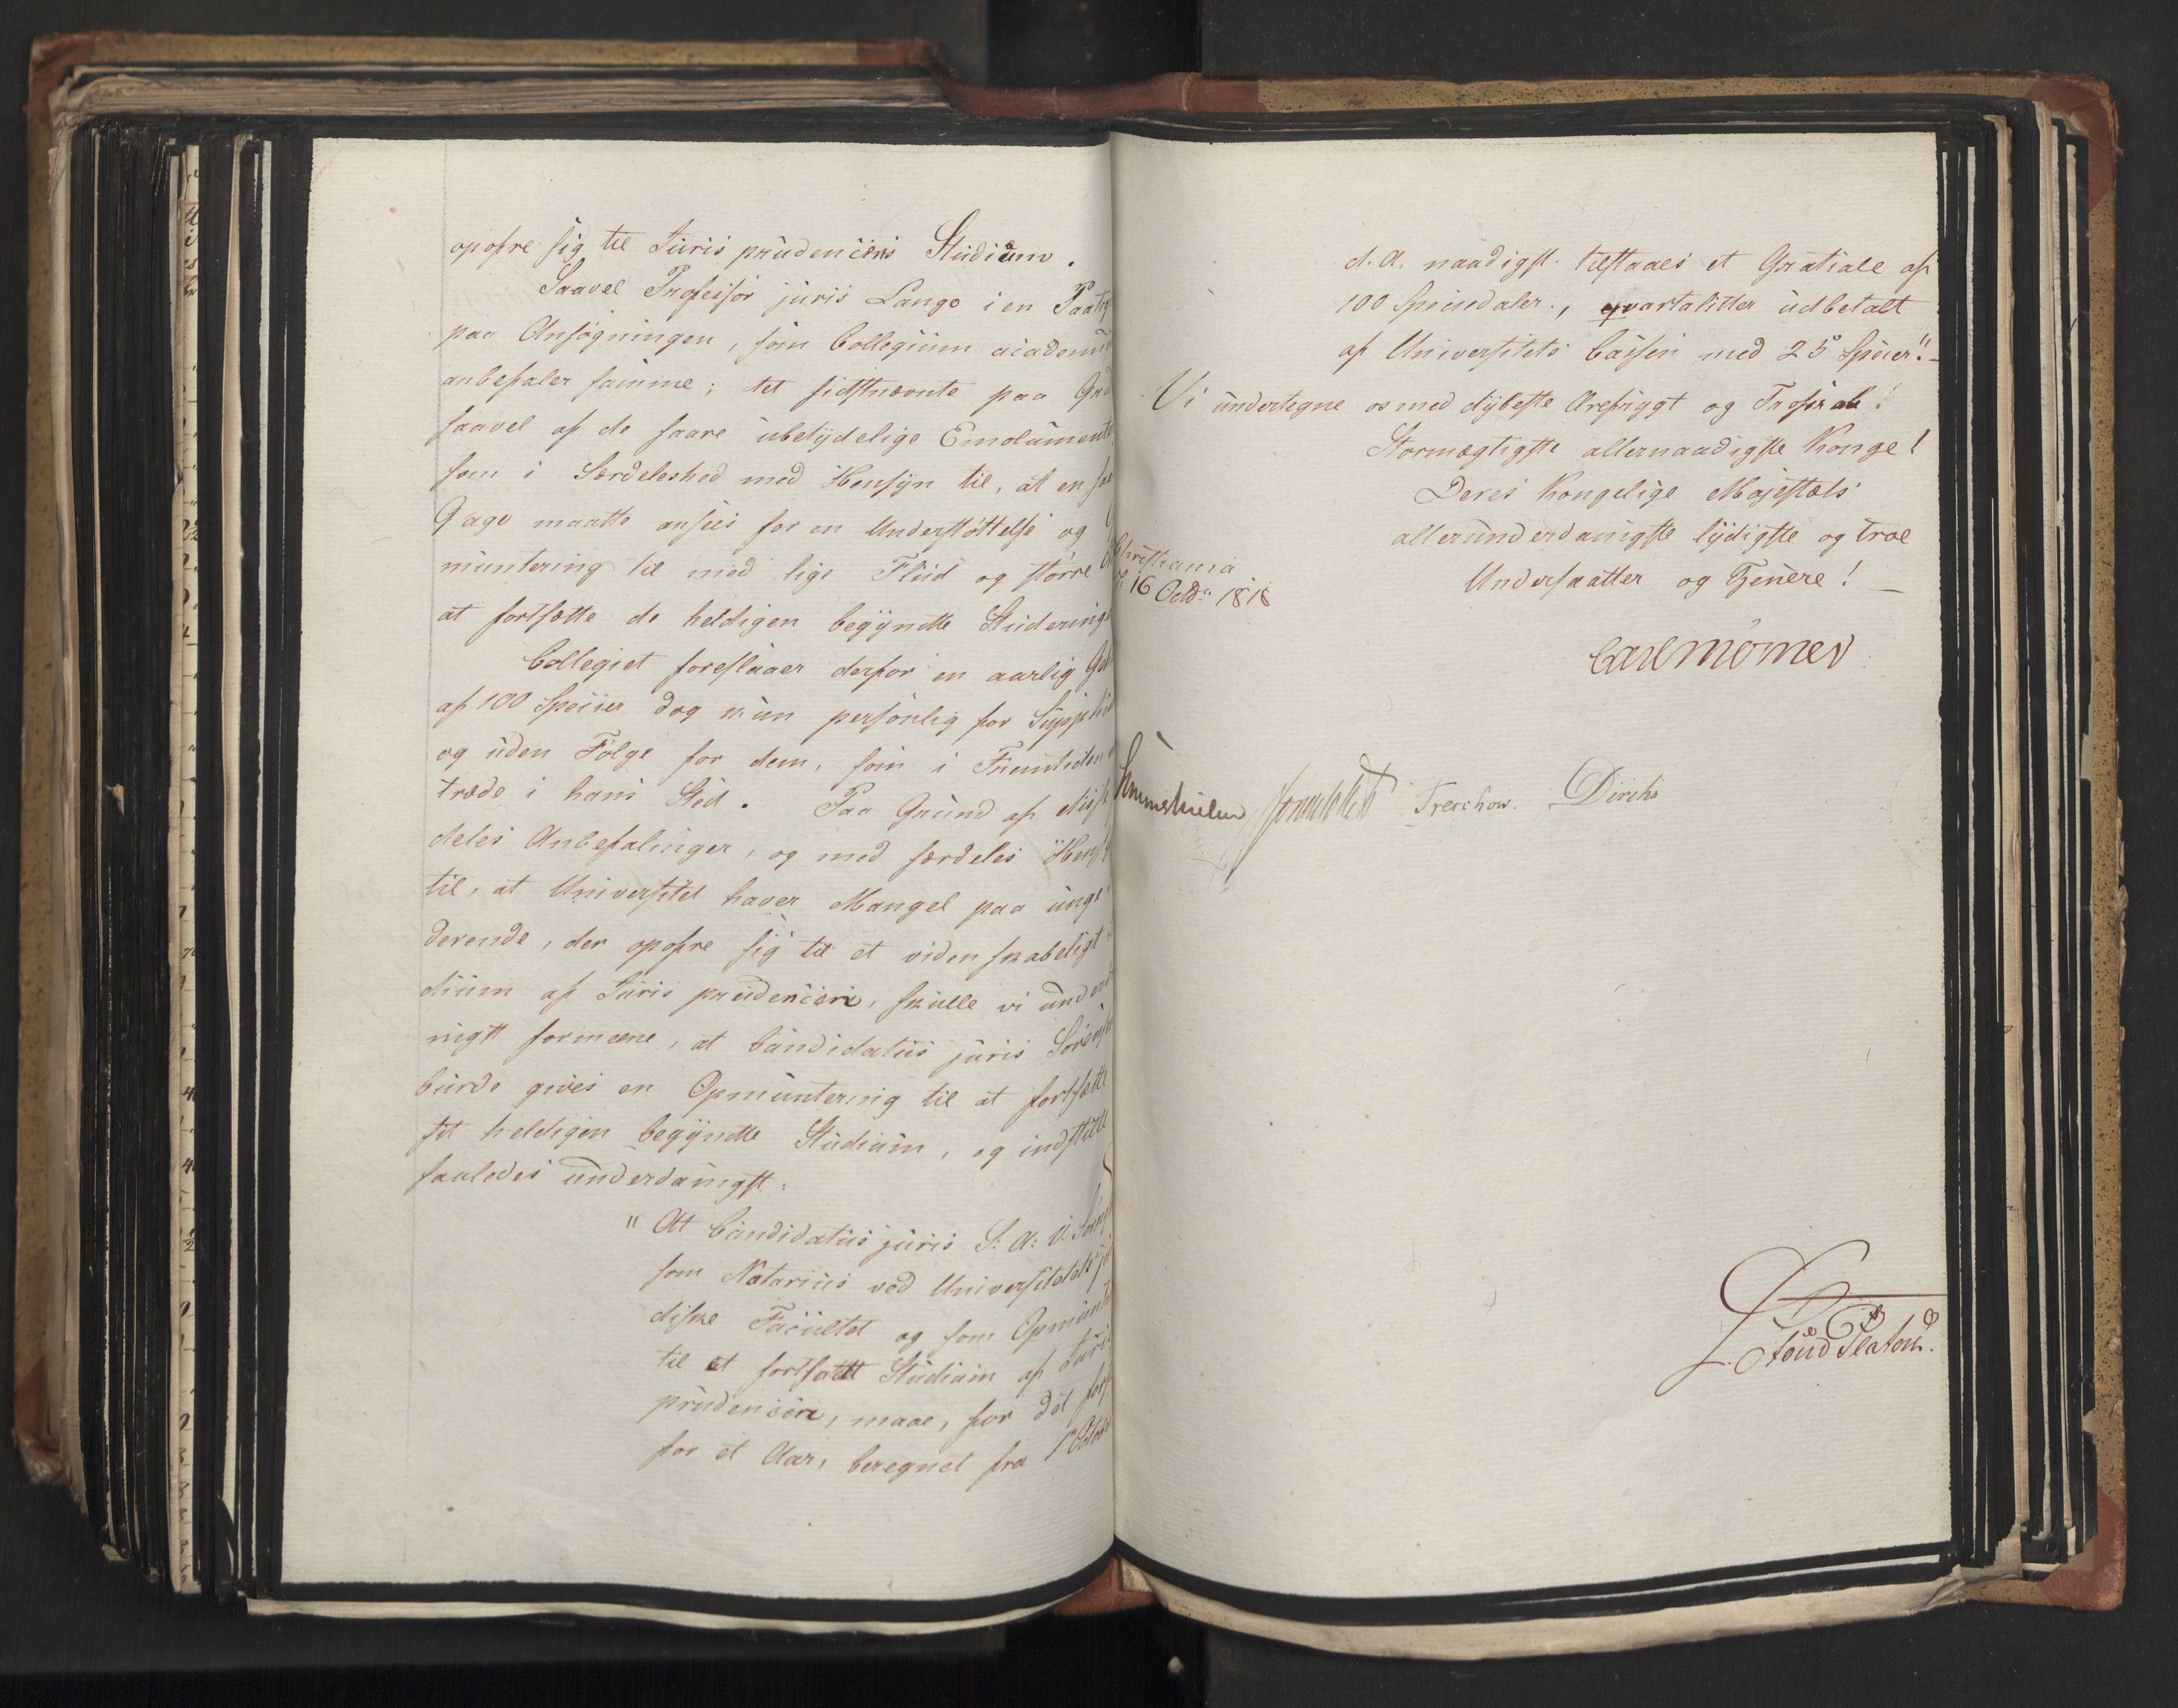 opofre sig til Jurisprudencens Studium.
Saavel Professor juris Lange i en Paateg
paa Ansøgningen, som Collegium academic
anbefaler samme; det sidstnævnte paa Gru
saavel af de saare ubetydelige Emolument
som i Særdeleshed med Hensyn til, at en saa
Gage maatte ansees for en Understøttelse og
muntering til med lige Fliid og større
at fortsætte de heldigen begyndte Studering
Collegiet foreslaaer derfor en aarlig
af 100 Specier dog kun personlig for Suppli
og uden Følge for dem, som i Fremtiden
træde i hans Sted. Paa Grund af disse
deles Anbefalinger, og med særdeles Hens
til, at Universitet haver Mangel paa unge
derende, der opofre sig til et videnskabeligt
dium af Jurisprudencen, skulle vi under
nigst formene, at Candidatus juris Sørens
burde gives en Opmuntring til at fortsætte
sit heldigen begyndte Studium, og indstille
saaledes underdanigst:
"At Candidatus juris S: A: V. Sørens
som Notarius ved Universitetets ju
diske Facultet og som Opmunt
til et fortsatt Studium af Juris
prudencen, maae, for det første
for et Aar, beregnet fra 1 Octobr
d. A. naadigst tilstaaes et Gratiale af
100 Speciedaler, qvartaliter udbetalt
af Universitets Cassen med 25 Specier."
Vi undertegne os med dybeste Ærefrygt og Troskab!
Stormægtigste allernaadigste Konge!
Deres Kongelige Majestæts
allerunderdanigste lydigste og troe
Undersaatter og Tjenere!
Christiania
d: 16 Octbr 1818
Carl Mörner
Sommerhielm Treschow. Diriks
L. Stoud Platou.